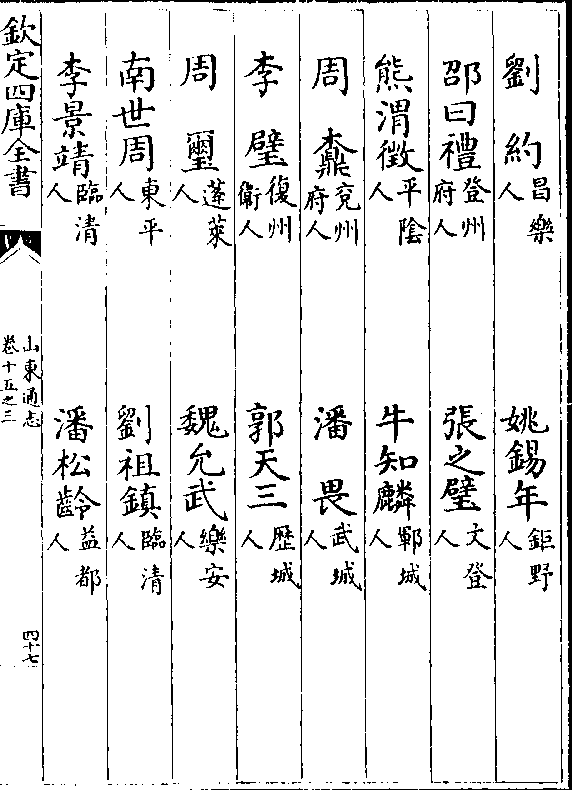 劉約昌樂人 姚錫年鉅野人
邵曰禮登州府人 張之璧文登人
熊渭徵平陰人 牛知麟鄆城人
周鼐兖州府人 潘畏武城人
李璧復州衛人 郭天三歴城人
周璽蓬萊人 魏允武樂安人
南世周東平人 劉祖鎮臨清人
李景靖臨清人 潘松齡益都人
欽定四庫全書 山東通志 卷十五之三 四十七